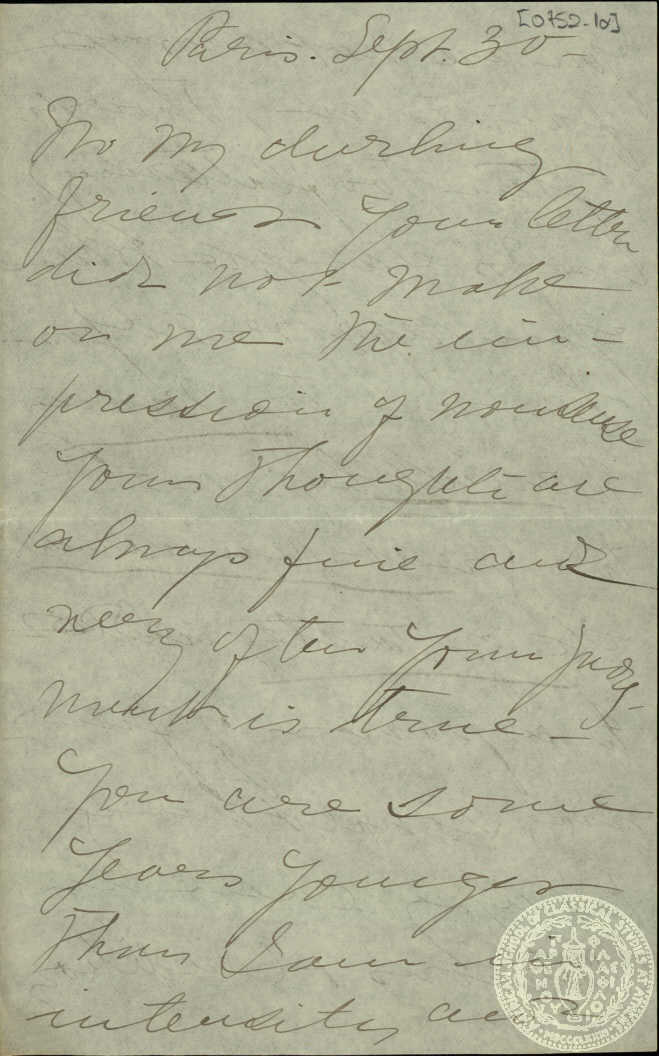 [0752-1a]
Paris. Sept. 30 -
No my darling
friend your letter
did not make
on me the im-
pression of nonsense
Your thoughts are
always fine and
very often your judg-
ment is true -
You are some
years younger
than I am in
intensity and